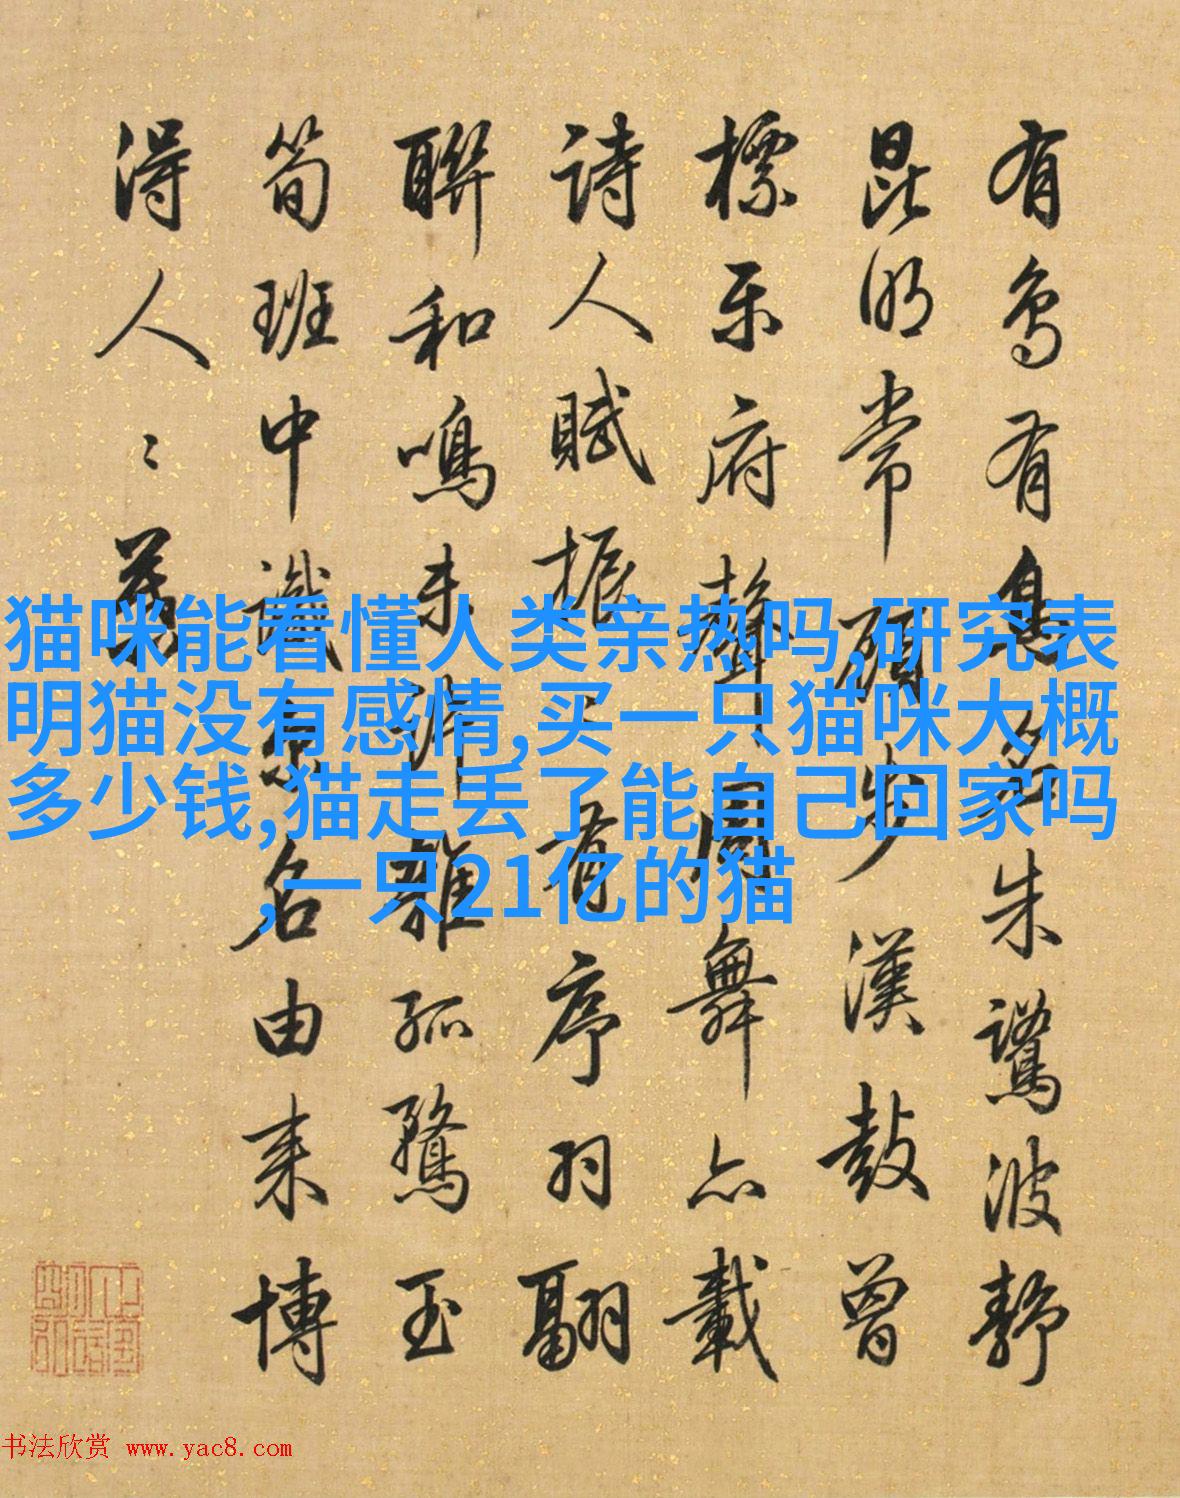 有鳥有鳥名朱鷺波靜
昆明常顧步漢鼓曾
標樂府聲圓舞亦載
詩人賦振振有序羽翩
聯和鳴未許離孤鶩玉
筍班中識名由来博
得人人
猫咪能看懂人类亲热吗,研究表
明猫没有感情,买一只猫咪大概
多少钱,猫走丢了能自己回家吗
,一只21亿的猫
书法欣赏 www.yac8.com